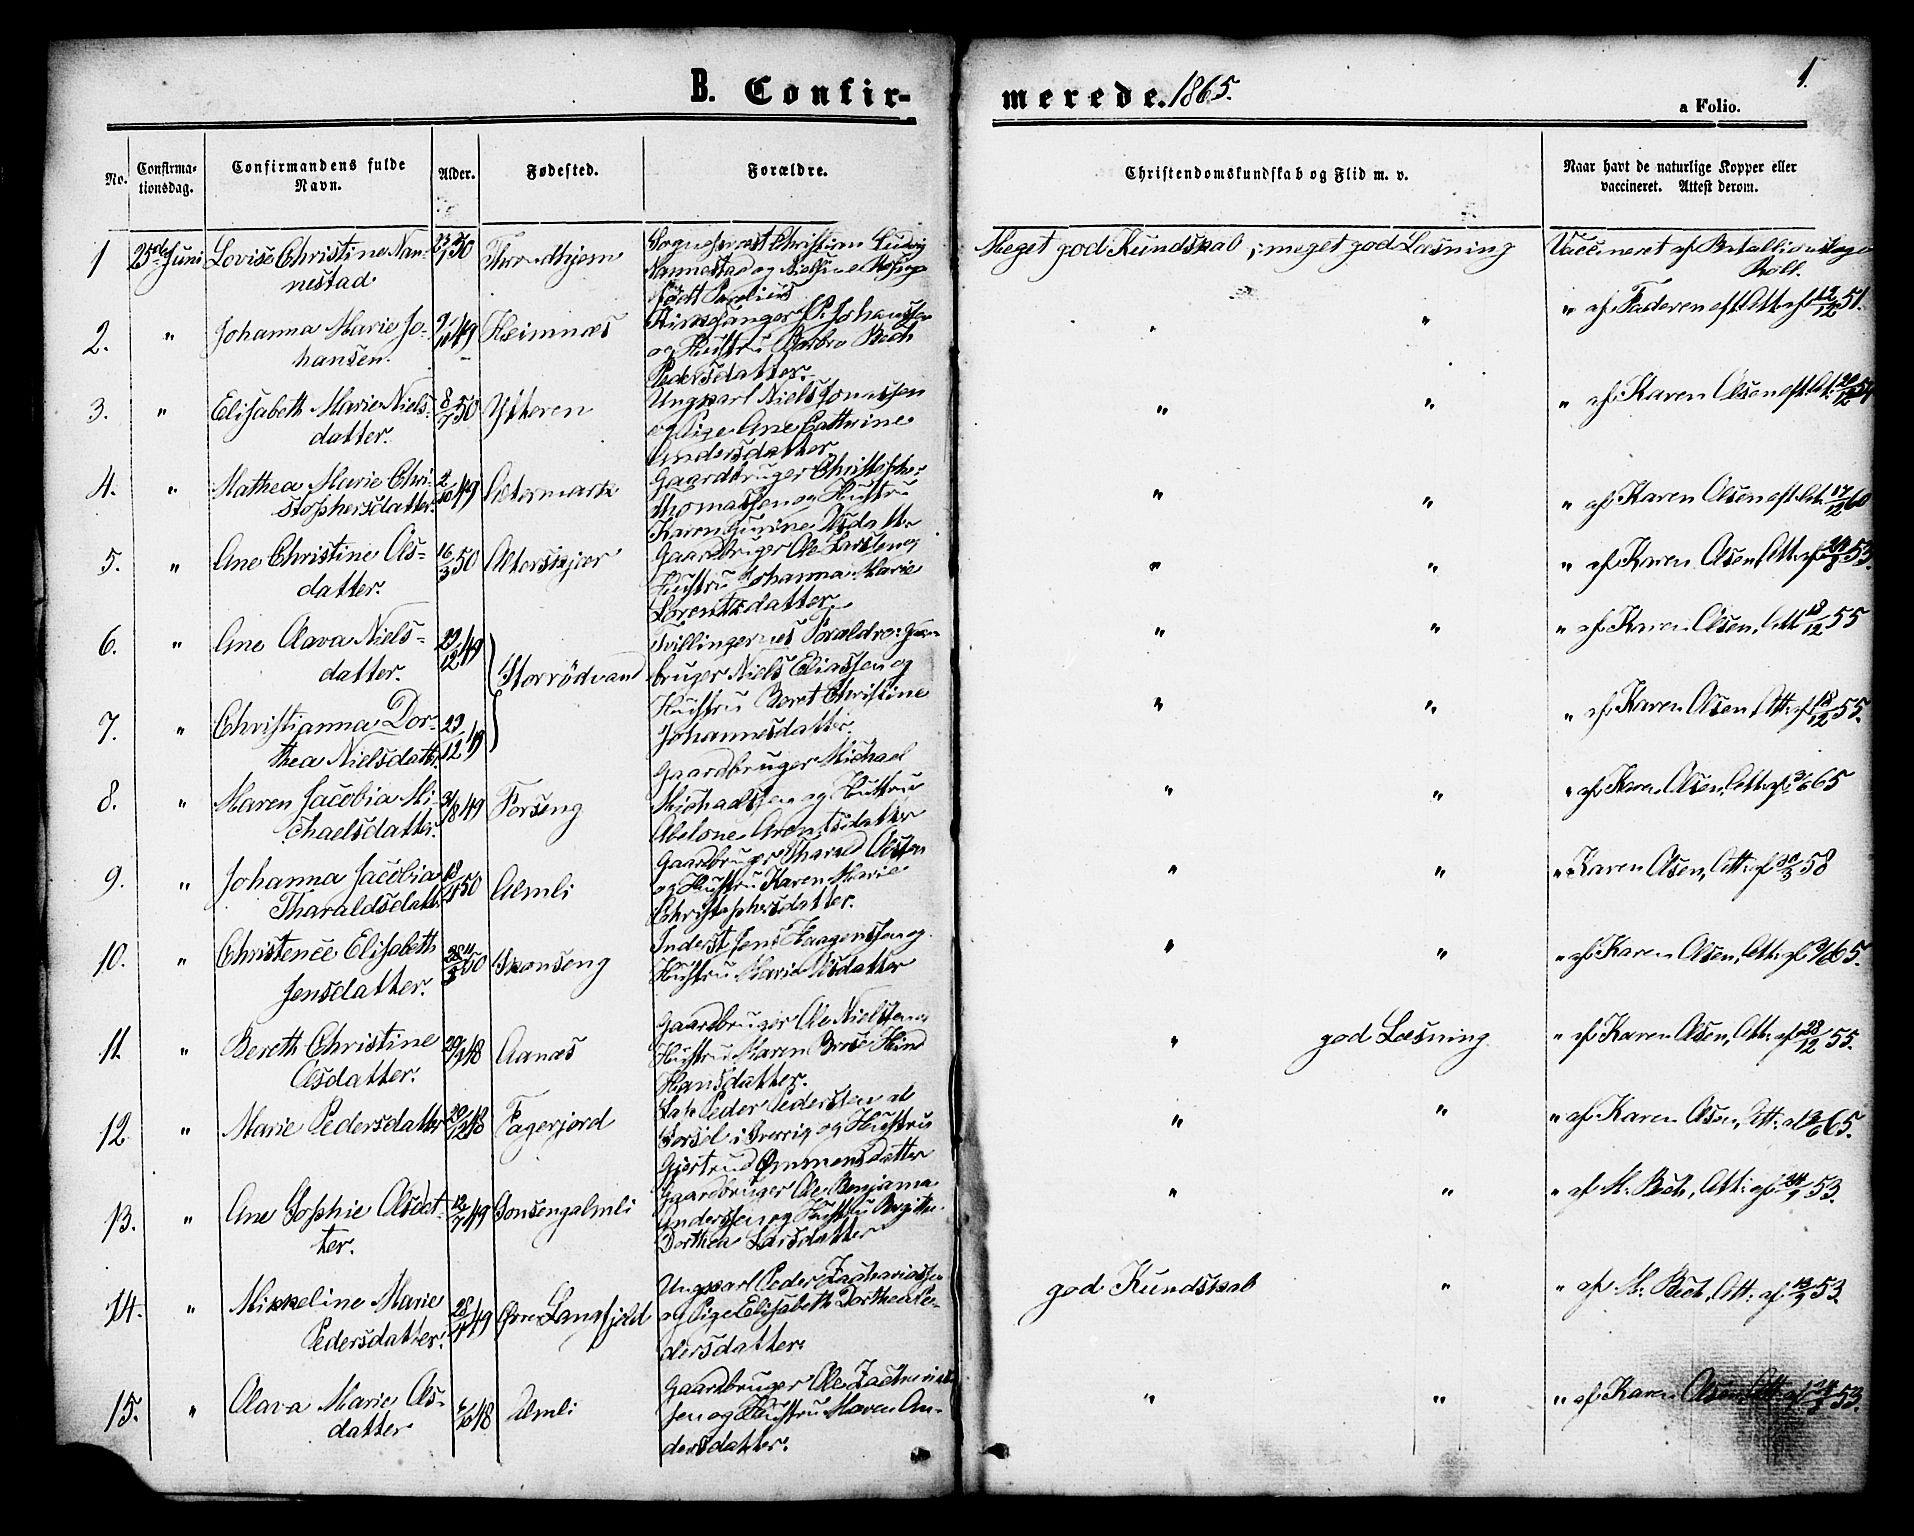 B. Confir-
merede. 1865.
1.
a Folio.
No.
Confirma-
tionsdag.
Confirmandens fulde
Navn.
Alder.
Fødested.
Forældre.
Christendomskundskab og Flid m. v.
Naar havt de naturlige Kopper eller
vaccineret. Attest derom.
1 25de Juni Lovise Christine Nan-
nestad
50 Throndhjem
Sogneprost Christian Ludvig
Nannestad og Nielsine
født
Meget god Kundskab ; meget god Læsning
Vaccineret af
2. " Johanna Marie Jo-
hansen.
49 Heimnæs
Kirkesanger P. Johansen
og Hustru Barbro Bech
Pedersdatter.
" "
" af Faderen eft. Att. af 12/12 51.
3. " Elisabeth Marie Niels-
datter.
8/7 50 Ytteren
Ungkarl Niels Jonassen
og Pige Ane Cathrine
Andersdatter
" "
" af Karen Olsen eft. Att.
4. " Mathea Marie Chri-
stophersdatter.
2/10 49
Gaardbruger Christopher
Thomassen og Hustru
Karen Gurine Olsdattr
" "
" af Karen Olsen eft. Att. 17/12 60
5. " Ane Christine Ols-
datter.
16/3 50 Alterskjær
Gaardbruger Ole Larsen og
Hustru Johanna Marie
Lorentsdatter
" "
" af Karen Olsen, Att. af 24/8 53.
6. " Ane Olava Niels-
datter.
22/12 49 Storrödvand
Tvillingernes Forældre: Gaard-
bruger Niels Eliassen og
Hustru Beret Christine
Johannesdatter.
" "
" af Karen Olsen, Att. 18/12 55
7. " Christianna Dor-
thea Nielsdattr.
22/12 49
" "
" af Karen Olsen, Att: af 18/12 55.
8. " Maren Jacobia Mi-
chaelsdatter.
3/8 49 Forseng
Gaardbruger Michael
Michaelsen og Hustru
Abelone Arentsdatter
" "
" af Karen Olsen, Att. af 3/6 65
9. " Johanna Jacobia
Tharaldsdatt.
18/4 50 Almli
Gaardbruger Tharald Olssen
og Hustru Karen Marie
Christophersdatter.
" "
" Karen Olsen, Att: af 30/3 58
10. " Christence Elisabeth
Jensdatter.
50 Skonseng
Inderst Jens Haagensen og
Hustru Marie Olsdatter
" "
" af Karen Olsen, Att: af 9/6 65.
11. " Bereth Christine
Olsdatter.
48 Aanæs
Gaardbruger Ole Nielssen og
Hustru Maren
Hansdatter.
" god Læsning
" af Karen Olsen, Att: af 28/12 55.
12 " Marie Pedersdatter
20/12 48 Fagerjord
Peder Pedersen af
Sorsel i Sverrig og Hustru
Gjertrud Ommensdatter
" "
" af Karen Olsen, Att: af 65.
13. " Ane Sophie Olsdat-
ter.
12/7 49 Gonsengalmli
Gaardbruger Ole Benjamin
Anderssen og Hustru Birgitte
Dorthea Larsdatter
" "
" af M. Bech, Att: af 24/9 53.
14. " Mikkeline Marie
Pedersdatter.
49 Øvre Langfjeld
Ungkarl Peder Zachariassen
og Pige Elisabeth Dorthea Pe-
dersdatter.
god Kundskab "
" af M. Bech, Att: af 53.
15. " Olava Marie Ols-
datter
48 Almli
Gaardbruger Ole Zacharias-
sen og Hustru Maren An-
dersdatter.
" "
" af Karen Olsen, Att. af 53.